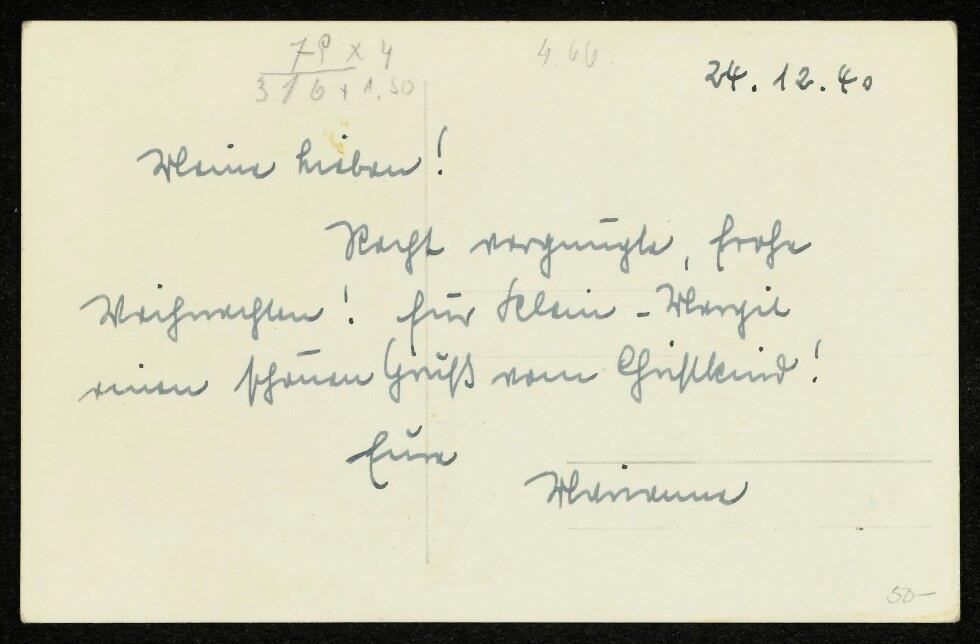 79 x 4
316 x 1.50
4.66
24.12.40
Meine Lieben!
Recht vergnügte, frohe
Weihnachten! Für Klein-Margit
einen schönen Gruß vom Christkind!
Eure
Marianne
50-